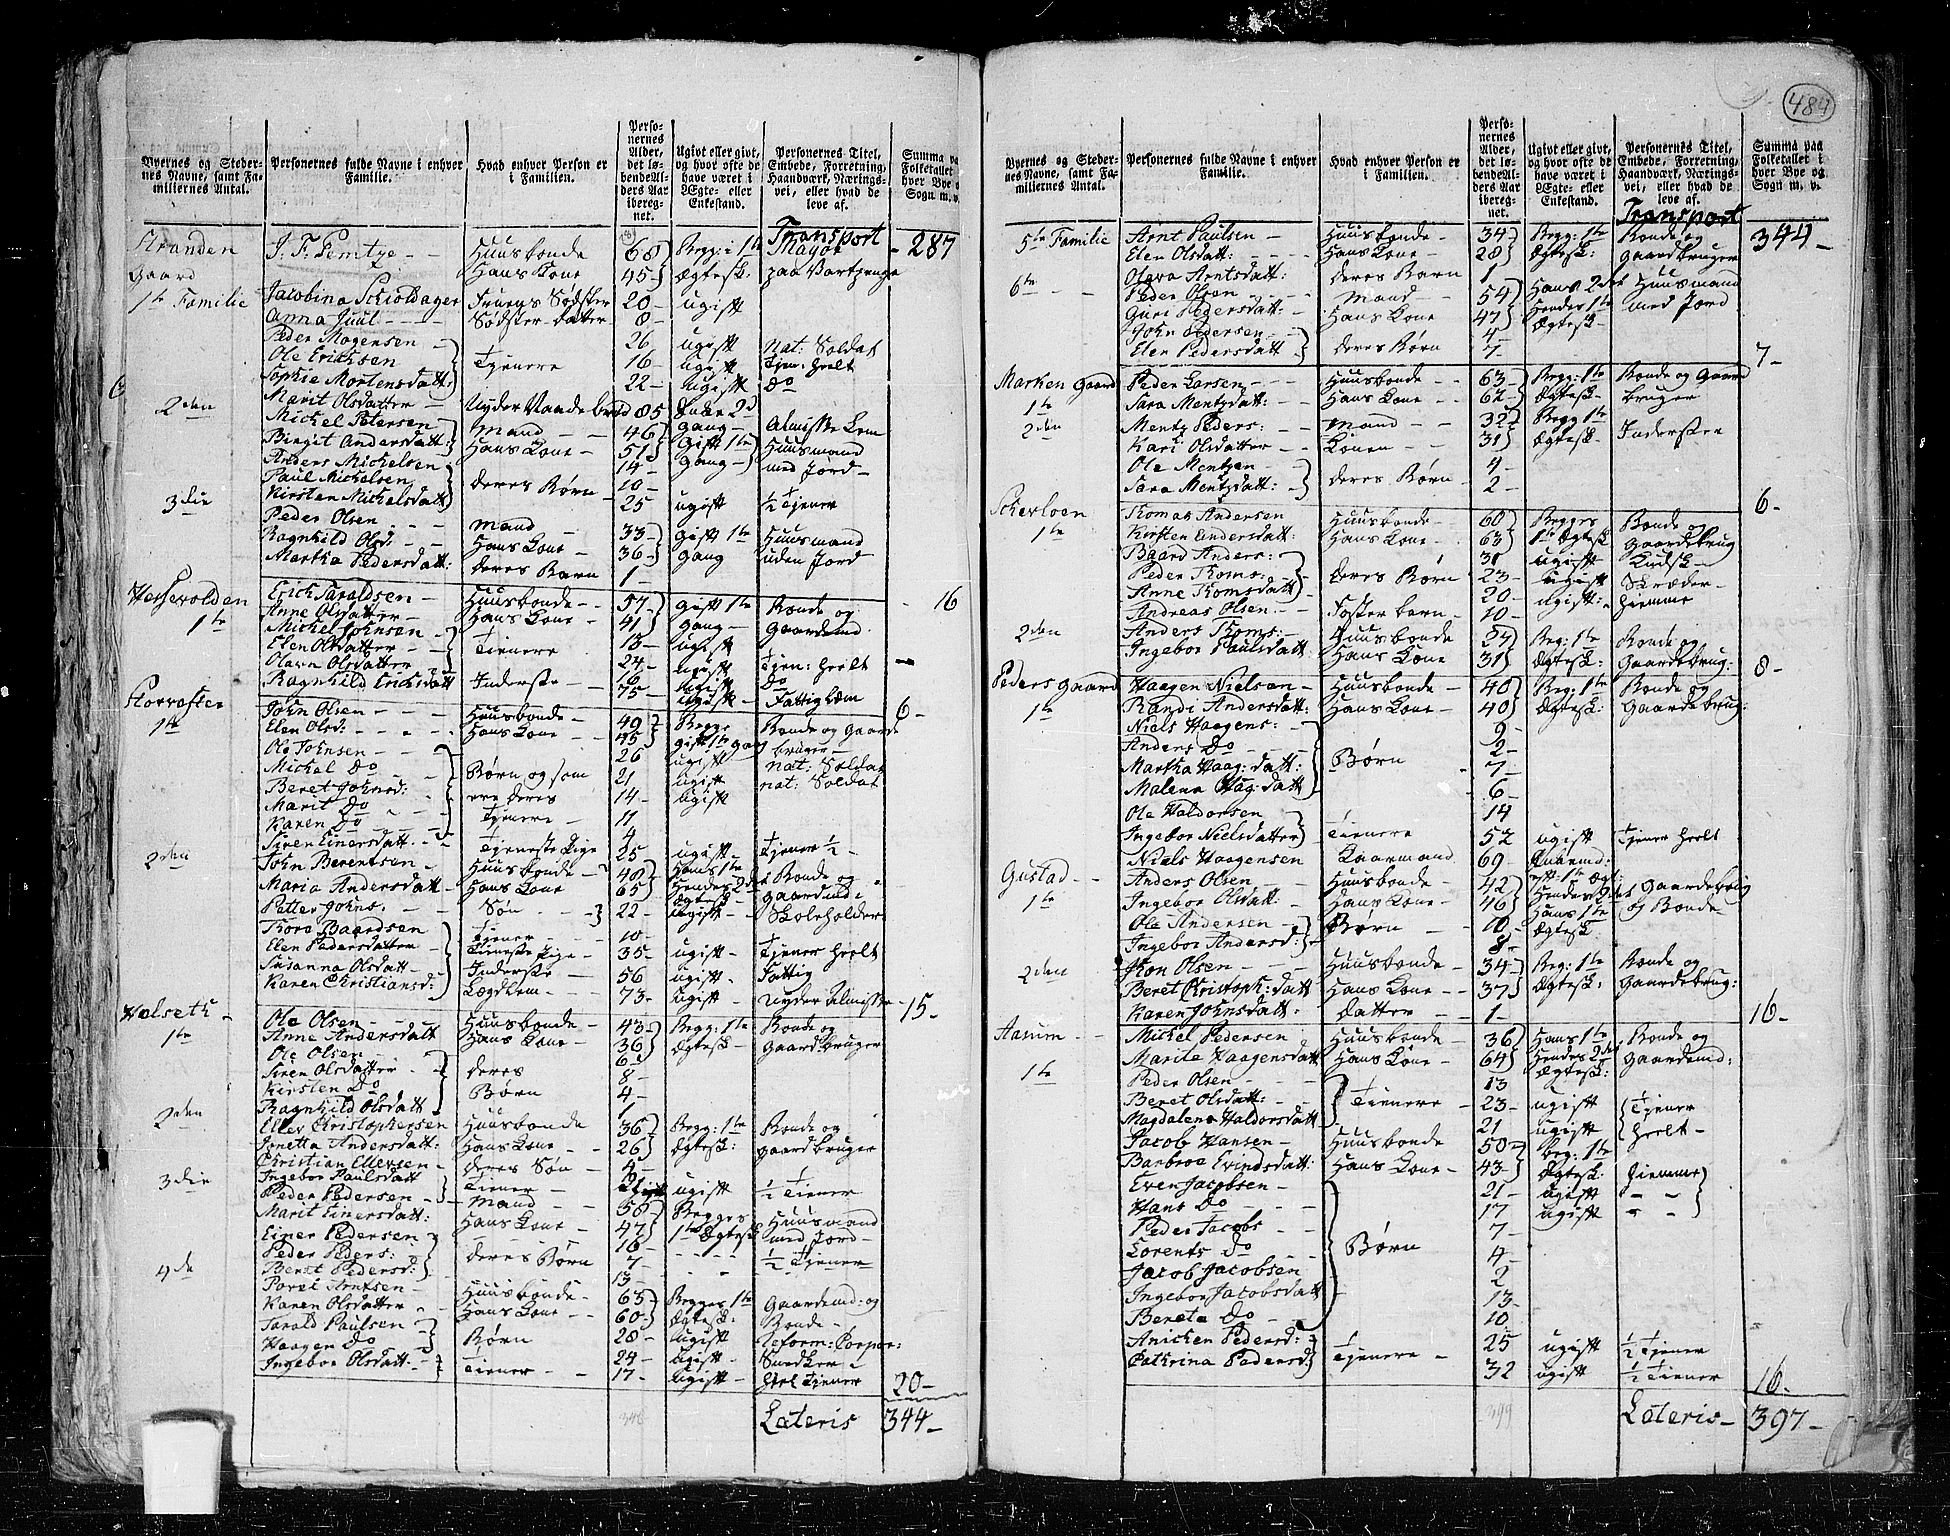 484
Byernes og Stedernes Navne, samt Familiernes Antal. | Personernes fulde Navne i enhver Familie. | Hvad enhver Person er i Familien. | Personernes Alder, det løbende Alders Aar iberegnet. | Ugivt eller givt, og hvor ofte de have været i Ægte- eller Enkestand. | Personernes Titel, Embede, Forretning, Haandværk, Næringsvei, eller hvad de leve af. | Summa paa Folketallet i hver Bye og Sogn m. v.
Transport - 287
Stranden Gaard 1te Familie | J. F. Pemtze | Huusbonde | 68 | Begg: i 1te | Major
Hans Kone | 45 | Ægtesk:
Jacobina Schioldager | Fruens Sødster | 20 - | ugift
Anna Juul - - - | Sødster datter | 8 -
Peder Mogensen | 26 | ugift | Nat: Soldat
Ole Ericksen | Tjenere | 16 - | ugift | Tjen: heelt
Sophie Mortensdatt: | 22 - | ugift | Do
2den | Marit Olsdatter - | 85 | Enke 2d
Michel Petersen - | Mand - - | 46 | gang - | Almisse Lem
Birgit Andersdatt: | Hans Kone - | 51 | Gift 1te | Huusmand
Anders Michelsen | 14 - | Gang - | med Jord -
Paul Michelsen | deres Børn - | 10 -
3die | Kirsten Michelsdatt | 25 | ugift | ½ Tjener
Peder Olsen - - | Mand - - | 33 - | Gift 1te | Huusmand
Ragnhild Olsd: - - | Hans Kone - | 36 - | Gang | uden Jord
Martha Pedersdatt: | deres Barn | 1 -
1te | Erich Taraldsen - | Huusbonde - | 57 | Gift 1te | Bonde og | 16
Anne Olsdatter - | Hans Kone - | 41 | Gang - | Gaardmd
Michel Johnsen - | 13 - | ugift
Elen Olsdatter | Tienere | 24 - | ugift | Tjen: heelt
Olava Olsdatter | 16 | ugift | Do
Ragnhild Ericksdatt | Inderste - | 75 - | ugift - | Fattig Lem | 6 -
1te | John Olsen - - - | Huusbonde - | 49 | Begge | Bonde og Gaard
Elen Olsd: - - - | Hans Kone - - | 45 | gift 1te gang | bruger -
Ole Johnsen - - | 26 | ugift | nat: Soldat
Michel Do | Børn og som | 21 | ugift | nat: Soldat
Beret Johnsd: | ere deres | 14 - | ugift
Marit Do - - | Tjenere - | 11
Karen Do | 4
Siren Einersdatt. - - | Tjeneste Pige | 25 | ugift - | Tjener ½ -
2den | John Berentsen - | Huusbonde - | 48 | Hans 1te | Bonde og
Maria Andersdatt - | Hans Kone | 65 | Hendes 2det Ægtesk - | Gaardmd:
Petter Johns: - - | Søn - - | 22 - | ugift - | Skoleholder
Tore Baardsen | Tjener - - | 10 -
Elen Pedersdatter - | Tieneste Pige - | 35 - | ugift - | Tjener heelt
Susanna Olsdatt - | Inderste - | 56 | ugift - | Fattig
Karen Christiansd: | Lægdlem - | 73 - | ugift - | nyder Almisse | - 15 -
Halseth - 1te | Ole Olsen - - | Huusbonde - | 43 - | Begg: 1te | Bonde og
Anne Andersdatt | Hans Kone - | 36 | Ægtesk - | Gaardbruger
Ole Olsen - | 6 -
Siren Olsdatter - | deres | 8 -
Kirsten Do | Børn | 4 -
Ragnhild Olsdatt | 1
2den | Eller Christophersen | Huusbonde | 36 | Begg: 1te | Bonde og
Jonetta Andersdatt: | Hans Kone - | 26 | Ægtesk: | gaardbruger
Christian Ellersen - | deres Søn - | 4 -
Ingebor Paulsdatt | Tiener - | 21 | ugift | ½ Tiener
3die | Peder Pedersen - | Mand - - | 58 | Begges | Huusmand
Marit Einersdatt: | Hans Kone - | 47 | 1te Ægtesk | med Jord -
Einer Pedersen | 16 -
Peder Peders: | deres Børn | 7 -
Beret Pedersd: | 13 - | ½ Tjener
4de | Povel Arntsen - | Huusbonde - | 63 | Begges 1te | Gaardmd: og
Karen Olsdatter - | Hans Kone - | 60 | Ægtesk: | Bonde -
Tarald Paulsen | 28 - | ugift
Haagen Do | Børn | 24 - | ugift - | Snedker -
Ingebor Olsdatt - | Tiener - - | 17 - | ugift - | heel Tjener | 20 -
Lateris 344 -
Byernes og Stedernes Navne, samt Familiernes Antal. | Personernes fulde Navne i enhver Familie. | Hvad enhver Person er i Familien. | Personernes Alder, det løbende Alders Aar iberegnet. | Ugivt eller givt, og hvor ofte de have været i Ægte- eller Enkestand. | Personernes Titel, Embede, Forretning, Haandværk, Næringsvei, eller hvad de leve af. | Summa paa Folketallet i hver Bye og Sogn m. v.
Transport 344 -
5te Familie | Arnt Paulsen - | Huusbonde - | 34 | Begg: 1te | Bonde og
Elen Olsdatt: - | Hans Kone - | 28 | Ægtesk: | Gaardbruger
Olava Arntsdatt: | deres Barn | 1
6te - - | Peder Olsen - - | Mand - - | 54 | Hans 2det | Huusmand
Guri Pedersdatt: - | Hans Kone | 47 | Hendes 1te Ægtesk - | med Jord
John Pedersen - - | 4 -
Elen Pedersdatt | deres Børn | 7 - | 7 -
Marken Gaard 1te | Peder Larsen - - | Huusbonde - - | 63 - | Begg: 1te | Bonde og Gaard
Sara Mentzdatt: - | Hans Kone - - | 62 - | Ægtesk - | bruger
2den | Mentz Peders: - | Mand - - | 32 | Begg 1te | Inderster
Kari Olsdatter - | Konen - | 31 | Ægtesk -
Ole Mentzen - | 4 -
Sara Mentzdatt: - | deres Børn - | 2 - | 6 -
1te | Thomas Andersen | Huusbonde - | 60 | Begges | Bonde og
Kirsten Endersdatt: | Hans Kone - | 63 | 1te Ægtesk | Gaardebrug
Baard Anders: | 31 | ugift | Kudsk -
Peder Thoms: | deres Børn | 23 - | ugift | Skræder
Anne Thomsdatt | 20 - | ugift: | hiemme
Andreas Olsen: - | Foster barn - | 10 -
2den | Anders Thoms: - | Huusbonde | 24 | Beg: 1te | Bonde og
Ingebor Paulsdatt | Hans Kone | 31 | Ægtesk: | Gaardebrug: | 8 -
Peders Gaard 1te | Haagen Nielsen - | Huusbonde - | 40 | Beg: 1te | Bonde og
Randi Andersdatt: | Hans Kone - | 40 | Ægtesk: | Gaardebrug:
Niels Haagens: | 9 -
Anders Do | 2 -
Martha Haag: datt: | Børn | 7 -
Malena Hag: datt | 6 -
Ole Haldorsen | 14
Ingebor Nielsdatter | Tienere | 52 | ugift | Tjener heelt
Niels Haagensen | Kaarmand | 69 - | Enkemd: eft: 1te Ægt:
Gustad - - 1te | Anders Olsen - | Huusbonde - | 42 | Hendes 2det | Gaardebrug
Ingebor Olsdatt: - | Hans Kone - | 46 | Hans 1te | og Bonde -
Ole Andersen - | Børn - - | 10 - | Ægtesk:
Ingebor Andersd: | 8 -
2den | Jhon Olsen - - | Huusbonde - | 34 - | Beg: 1te | Bonde og
Beret Christoph: datt | Hans Kone - - | 37 | Ægtesk: | Gaardebrug:
Karen Johnsdatt: | datter - - | 1 - | 16 -
Aarum - - 1te | Michel Pedersen | Huusbonde | 36 | Hans 1te | Bonde og
Marite Haagensdatt | Hans Kone - | 64 | Hendes 2det Ægtesk: | Gaardemd:
Peder Olsen - - - | 13
Beret Olsdatt: - - | Tienere - | 23 - | ugift | Tjener
Magdalena Haldorsdatt | 21 | ugift | heelt -
Jacob Hansen - | Huusbonde | 50 | beg: 1te
Barbroe Evindsdatt | Hans Kone - | 43 | Ægtesk: | hiemme
Even Jacobsen - | 21 - | ugift | " "
Hans Do - - - | 17 | ugift | " "
Peder Jacobs - | 7 -
Lorents Do - - | Børn | 4 -
Jacob Jacobsen | 2
Ingebor Jacobsdatt | 13 -
Bereta Do - - | 10
Anicken Pedersd: | Tjenere - | 25 | ugift | ½ Tjener
Cathrina Pedersd | 32 | ugift | ½ Tiener | 16 -
Lateris - 397 -